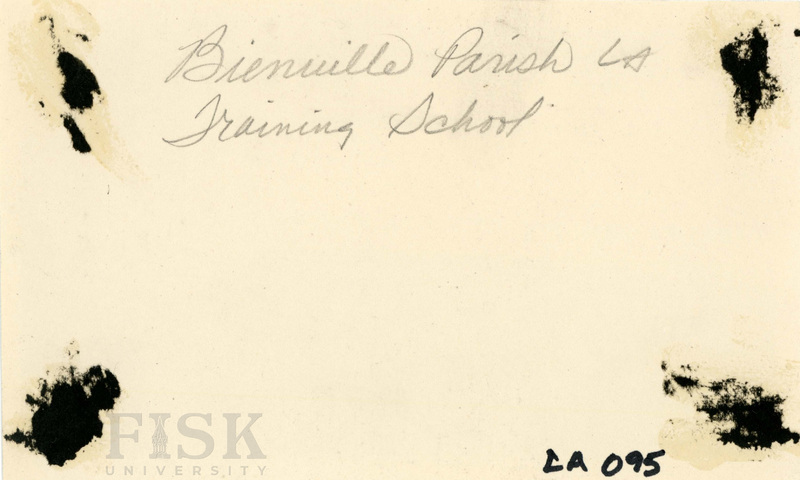 Bienville Parish LA
Training School
FISK
UNIVERSITY
LA 095